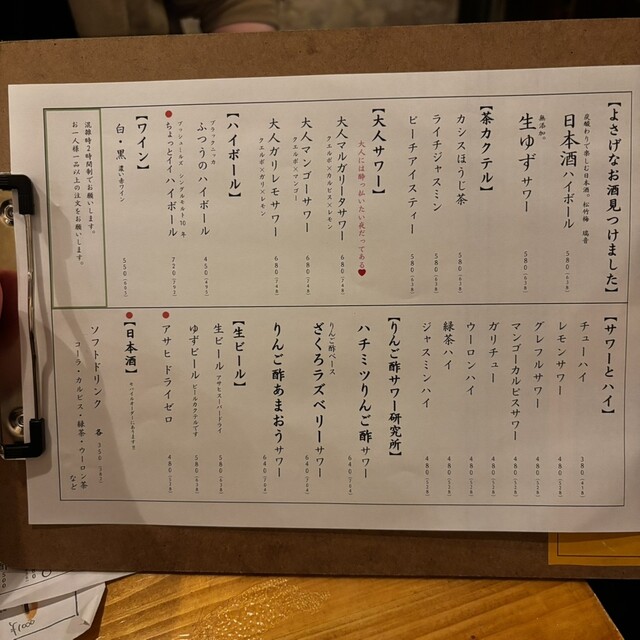 【よさげなお酒見つけました】
日本酒ハイボール 580
無添加。
生ゆずサワー 580
【茶カクテル】
カシスほうじ茶 580
ライチジャスミン 580
ピーチアイスティー 580
【大人サワー】
大人には酔っぱいたい夜だってある❤
大人マルガリータサワー 680
クエルボ×カルピス×レモン
大人マンゴーサワー 680
クエルボ×マンゴー
大人ガリレモサワー 680
クエルボ×ガリ×レモン
【ハイボール】
ブラックニッカ
ふつうのハイボール 450
ちょっとイイハイボール 720
【ワイン】
白・黒 濃い赤ワイン 550
混雑時2時間制でお願いします。
お一人様一品以上の注文をお願いします。
【サワーとハイ】
チューハイ 380
レモンサワー 480
グレフルサワー 480
マンゴーカルピスサワー 480
ガリチュー 480
ウーロンハイ 480
緑茶ハイ 480
ジャスミンハイ 480
【りんご酢サワー研究所】
ハチミツりんご酢サワー 640
りんご酢ベース
ざくろラズベリーサワー 640
りんご酢あまおうサワー 640
【生ビール】
生ビール 580
ゆずビール ビールカクテルです 580
アサヒ ドライゼロ 480
【日本酒】
ソフトドリンク 各350
コーラ・カルピス・緑茶・ウーロン茶 など
¥1000